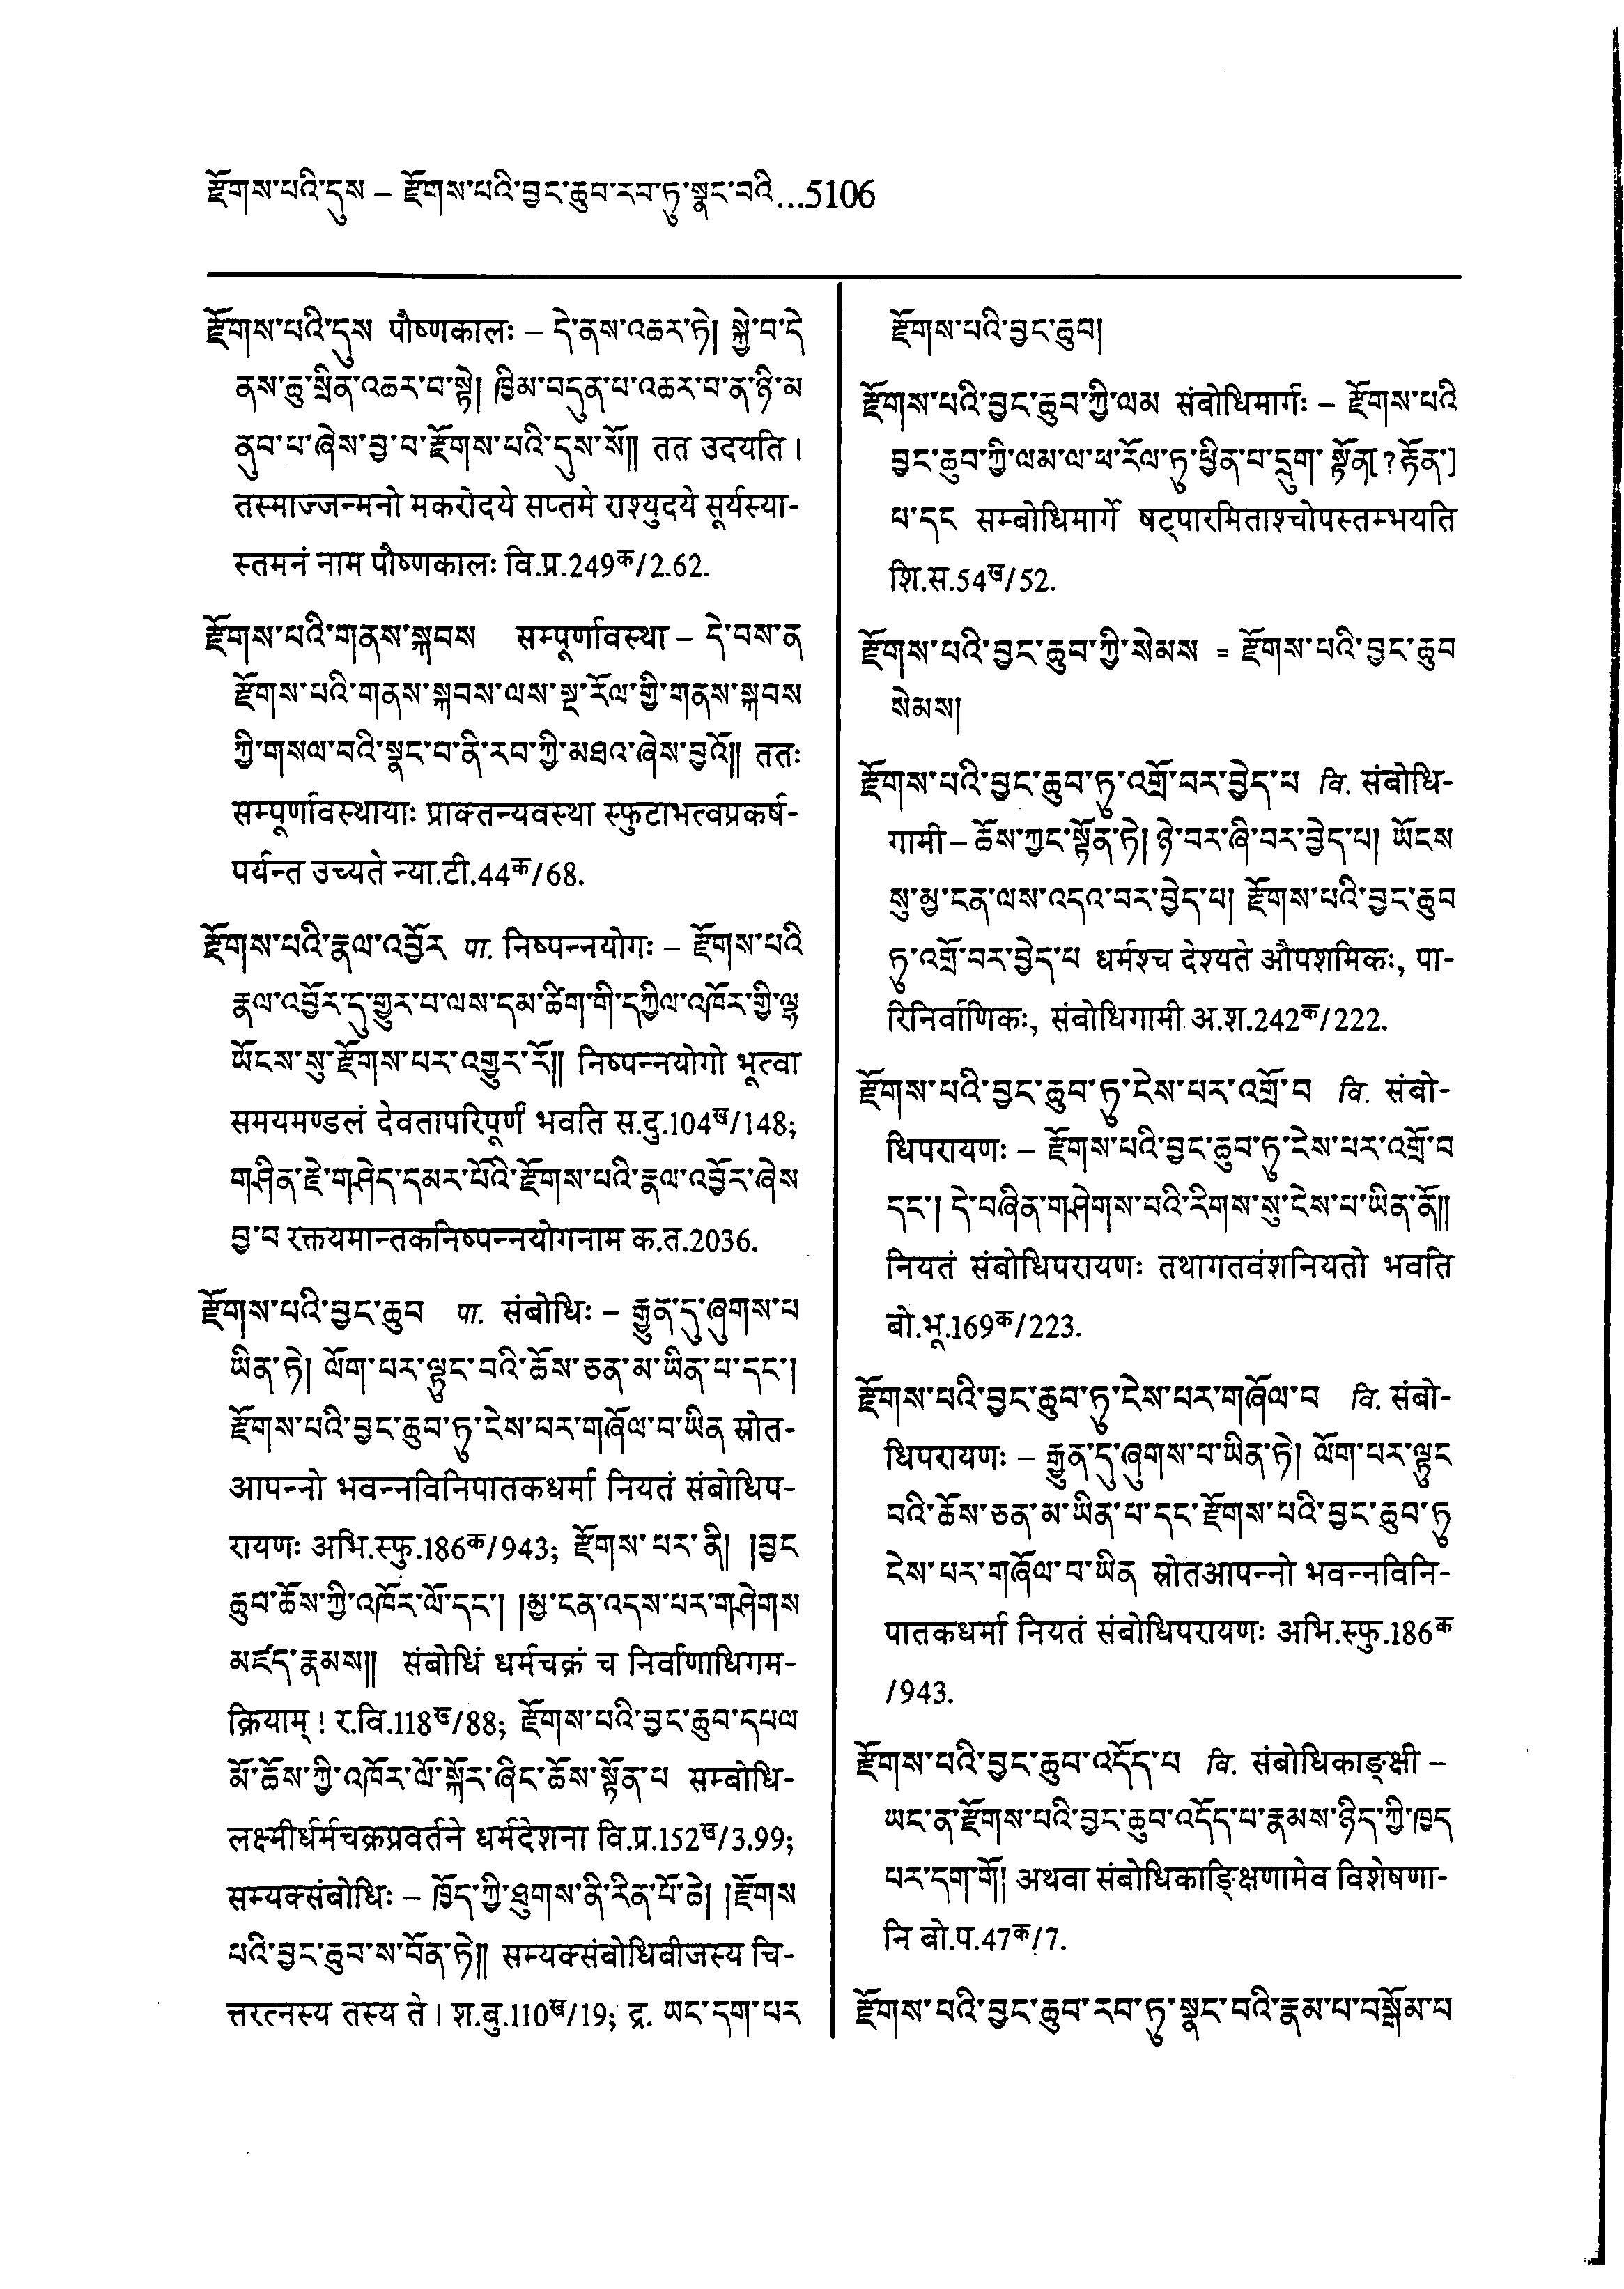 རྫོགས་པའི་དུས – རྫོགས་པའི་བྱང་ཆུབ་རབ་ཏུ་སྣང་བའི...5106
རྫོགས་པའི་དུས पौष्णकालः – དེ་ནས་འཆར་ཏེ། སྐྱེ་བ་དེ
ནས་ཆུ་སྲིན་འཆར་བ་སྟེ། ཁྱིམ་བདུན་པ་འཆར་བ་ན་ཉི་མ
ནུབ་པ་ཞེས་བྱ་བ་རྫོགས་པའི་དུས་སོ༎ तत उदयति ।
तस्माज्जन्मनो मकरोदये सप्तमे राश्युदये सूर्यस्या-
स्तमनं नाम पौष्णकालः वि.प्र.249क/2.62.
རྫོགས་པའི་གནས་སྐབས सम्पूर्णावस्था – དེ་བས་ན
རྫོགས་པའི་གནས་སྐབས་ལས་སྔ་རོལ་གྱི་གནས་སྐབས
ཀྱི་གསལ་བའི་སྣང་བ་ནི་རབ་ཀྱི་མཐའ་ཞེས་བྱའོ༎ ततः
सम्पूर्णावस्थायाः प्राक्तन्यवस्था स्फुटाभत्वप्रकर्ष-
पर्यन्त उच्यते न्या.टी.44क/68.
རྫོགས་པའི་རྣལ་འབྱོར पा. निष्पन्नयोगः – རྫོགས་པའི
རྣལ་འབྱོར་དུ་གྱུར་པ་ལས་དམ་ཚིག་གི་དཀྱིལ་འཁོར་གྱི་ལྷ
ཡོངས་སུ་རྫོགས་པར་འགྱུར་རོ༎ निष्पन्नयोगो भूत्वा
समयमण्डलं देवतापरिपूर्णं भवति स.दु.104ख/148;
གཤིན་རྗེ་གཤེད་དམར་པོའི་རྫོགས་པའི་རྣལ་འབྱོར་ཞེས
བྱ་བ रक्तयमान्तकनिष्पन्नयोगनाम क.त.2036.
རྫོགས་པའི་བྱང་ཆུབ पा. संबोधिः – རྒྱུན་དུ་ཞུགས་པ
ཡིན་ཏེ། ལོག་པར་ལྟུང་བའི་ཆོས་ཅན་མ་ཡིན་པ་དང་།
རྫོགས་པའི་བྱང་ཆུབ་ཏུ་ངེས་པར་གཞོལ་བ་ཡིན स्रोत-
आपन्नो भवन्नविनिपातकधर्मा नियतं संबोधिप-
रायणः अभि.स्फु.186क/943; རྫོགས་པར་ནི། །བྱང
ཆུབ་ཆོས་ཀྱི་འཁོར་ལོ་དང་། །མྱ་ངན་འདས་པར་གཤེགས
མཛད་རྣམས༎ संबोधिं धर्मचक्रं च निर्वाणाधिगम-
क्रियाम् ! र.वि.118ख/88; རྫོགས་པའི་བྱང་ཆུབ་དཔལ
མོ་ཆོས་ཀྱི་འཁོར་ལོ་སྐོར་ཞིང་ཆོས་སྟོན་པ सम्बोधि-
लक्ष्मीर्धर्मचक्रप्रवर्तने धर्मदेशना वि.प्र.152ख/3.99;
सम्यक्संबोधिः – ཁྱོད་ཀྱི་ཐུགས་ནི་རིན་པོ་ཆེ། །རྫོགས
པའི་བྱང་ཆུབ་ས་བོན་ཏེ༎ सम्यक्संबोधिबीजस्य चि-
त्तरत्नस्य तस्य ते । श.बु.110ख/19; द्र. ཡང་དག་པར
རྫོགས་པའི་བྱང་ཆུབ།
རྫོགས་པའི་བྱང་ཆུབ་ཀྱི་ལམ संबोधिमार्गः – རྫོགས་པའི
བྱང་ཆུབ་ཀྱི་ལམ་ལ་ཕ་རོལ་ཏུ་ཕྱིན་པ་དྲུག་ སྟོན[?རྟོན་]
པ་དང सम्बोधिमार्गे षट्पारमिताश्चोपस्तम्भयति
शि.स.54ख/52.
རྫོགས་པའི་བྱང་ཆུབ་ཀྱི་སེམས = རྫོགས་པའི་བྱང་ཆུབ
སེམས།
རྫོགས་པའི་བྱང་ཆུབ་ཏུ་འགྲོ་བར་བྱེད་པ वि. संबोधि-
गामी – ཆོས་ཀྱང་སྟོན་ཏེ། ཉེ་བར་ཞི་བར་བྱེད་པ། ཡོངས
སུ་མྱ་ངན་ལས་འདའ་བར་བྱེད་པ། རྫོགས་པའི་བྱང་ཆུབ
ཏུ་འགྲོ་བར་བྱེད་པ धर्मश्च देश्यते औपशमिकः, पा-
रिनिर्वाणिकः, संबोधिगामी अ.श.242क/222.
རྫོགས་པའི་བྱང་ཆུབ་ཏུ་ངེས་པར་འགྲོ་བ वि. संबो-
धिपरायणः – རྫོགས་པའི་བྱང་ཆུབ་ཏུ་ངེས་པར་འགྲོ་བ
དང་། དེ་བཞིན་གཤེགས་པའི་རིགས་སུ་ངེས་པ་ཡིན་ནོ༎
नियतं संबोधिपरायणः तथागतवंशनियतो भवति
बो.भू.169क/223.
རྫོགས་པའི་བྱང་ཆུབ་ཏུ་ངེས་པར་གཞོལ་བ वि. संबो-
धिपरायणः – རྒྱུན་དུ་ཞུགས་པ་ཡིན་ཏེ། ལོག་པར་ལྟུང
བའི་ཆོས་ཅན་མ་ཡིན་པ་དང་རྫོགས་པའི་བྱང་ཆུབ་ཏུ
ངེས་པར་གཞོལ་བ་ཡིན स्रोतआपन्नो भवन्नविनि-
पातकधर्मा नियतं संबोधिपरायणः अभि.स्फु.186क
/943.
རྫོགས་པའི་བྱང་ཆུབ་འདོད་པ वि. संबोधिकाङ्क्षी –
ཡང་ན་རྫོགས་པའི་བྱང་ཆུབ་འདོད་པ་རྣམས་ཉིད་ཀྱི་ཁྱད
པར་དག་གོ། अथवा संबोधिकाङ्क्षिणामेव विशेषणा-
नि बो.प.47क/7.
རྫོགས་པའི་བྱང་ཆུབ་རབ་ཏུ་སྣང་བའི་རྣམ་པ་བསྒོམ་པ